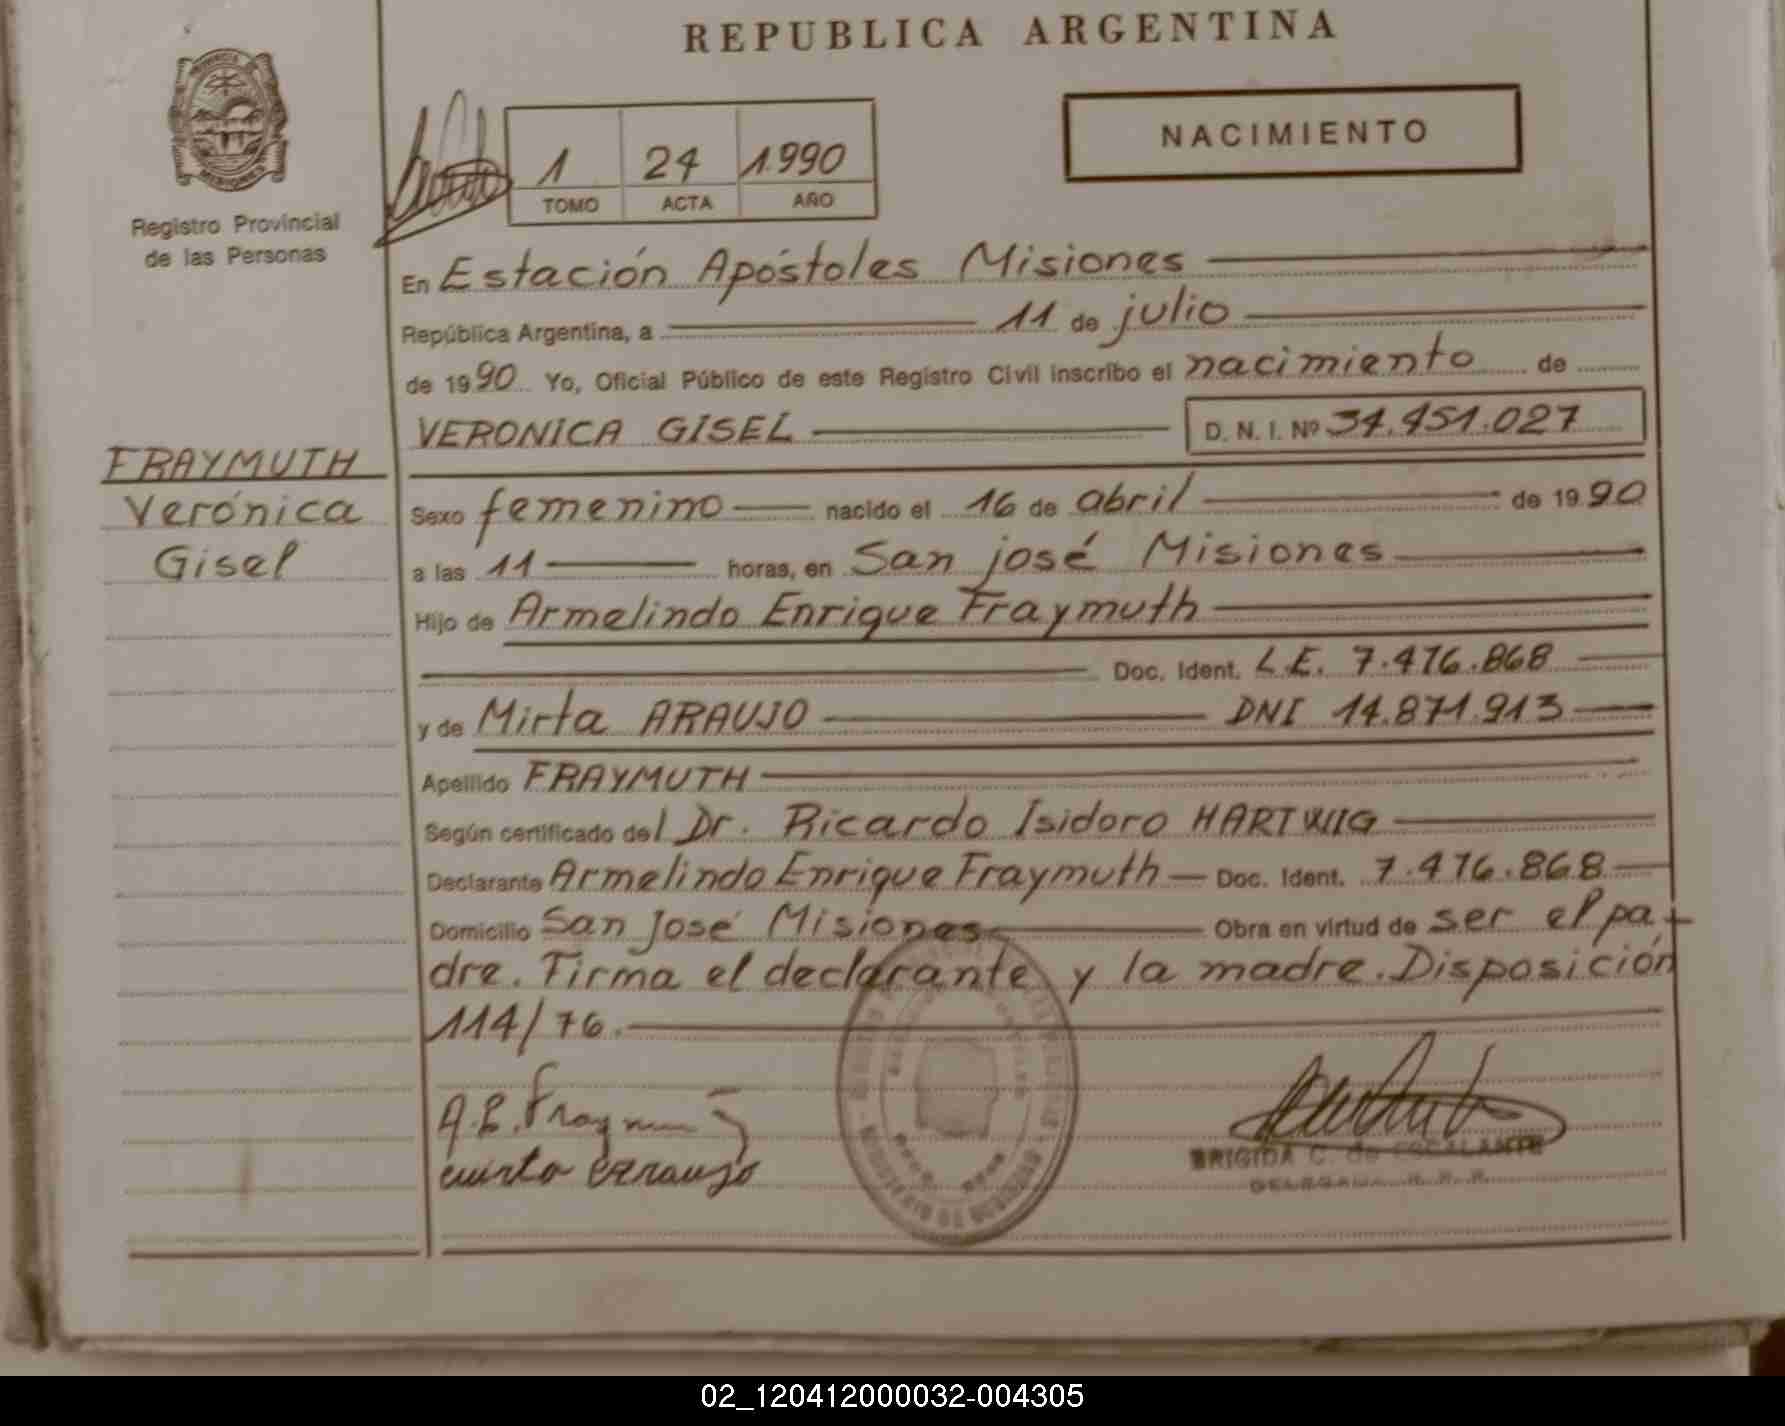 REPUBLICA ARGENTINA
PROVINCIA
MISIONES
Registro Provincial
de las Personas
1 24 1.990
TOMO ACTA AÑO
NACIMIENTO
En Estación Apóstoles Misiones
República Argentina, a 11 de julio
de 1990 Yo, Oficial Público de este Registro Civil inscribo el nacimiento de
VERONICA GISEL D. N. I. Nº 34.951.027
FRAYMUTH
Verónica
Gisel
Sexo femenino nacido el 16 de abril de 1990
a las 11 horas, en San josé Misiones
Hijo de Armelindo Enrique Fraymuth
Doc. Ident. L.E. 7.476.868
y de Mirta ARAUJO DNI 14.871.913
Apellido FRAYMUTH
Según certificado del Dr. Ricardo Isidoro HARTWIG
Declarante Armelindo Enrique Fraymuth Doc. Ident. 7.476.868
Domicilio San José Misiones Obra en virtud de ser el pa-
dre. Firma el declarante y la madre. Disposición
114/76.
BRIGIDA C. de ESCALANTE
02_120412000032-004305